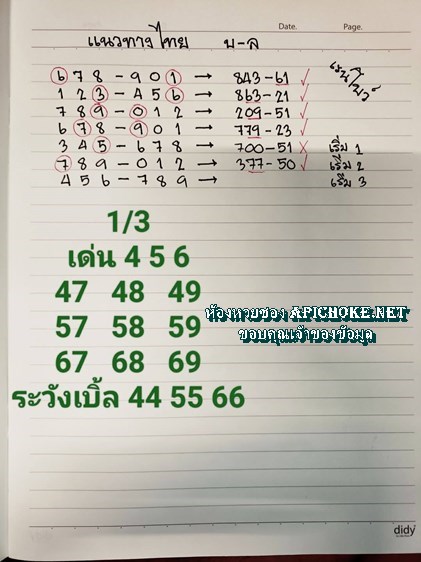 Date. Page.
แนวทางไทย บ-ล
678-901 → 843-61 ✓
123-456 → 863-21 ✓
789-012 → 209-51 ✓
678-901 → 779-23 ✓
345-678 → 700-51 × เริ่ม 1
789-012 → 377-50 ✓ เริ่ม 2
456-789 → เริ่ม 3
1/3
เด่น 4 5 6
47 48 49
57 58 59
67 68 69
ระวังเบิ้ล 44 55 66
ห้องหวยซอง APICHOKE.NET
ขอบคุณเจ้าของข้อมูล
didy